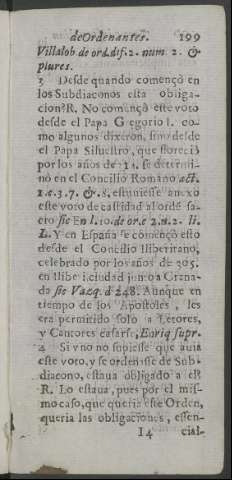 deOrdenantes. 199
Villalob de ord. dif. 2. num 2. &
plures.
3 Desde quando començò en
los Subdiaconos esta obliga-
cion? R. No començò este voto
desde el Papa Gregorio I. co-
mo algunos dixeron, sino desde
el Papa Siluestro, que floreciò
por los años de 314. se determi-
nò en el Concilio Romano act.
1. c. 3. 7. & 8. estuuiesse anexo
este voto de castidad al ordē sa-
cro sic En l. 10. de or. c 2. n. 2. li.
L. Y en España se començò esto
desde el Concilio Iliberitano,
celebrado por los años de 305.
en Iliberi, ciudad junto a Grana-
da sic Vazq. d 248. Aunque en
tiempo de los Apostoles, les
era permitido solo a Letores,
y Cantores casarse, Enriq supr.
4 Si vno no supiesse que auia
este voto, y se ordenasse de Sub-
diacono, estaua obligado a el?
R. Lo estaua, pues por el mis-
mo caso, que queria este Orden,
queria las obligaciones, essen-
I4 cial-